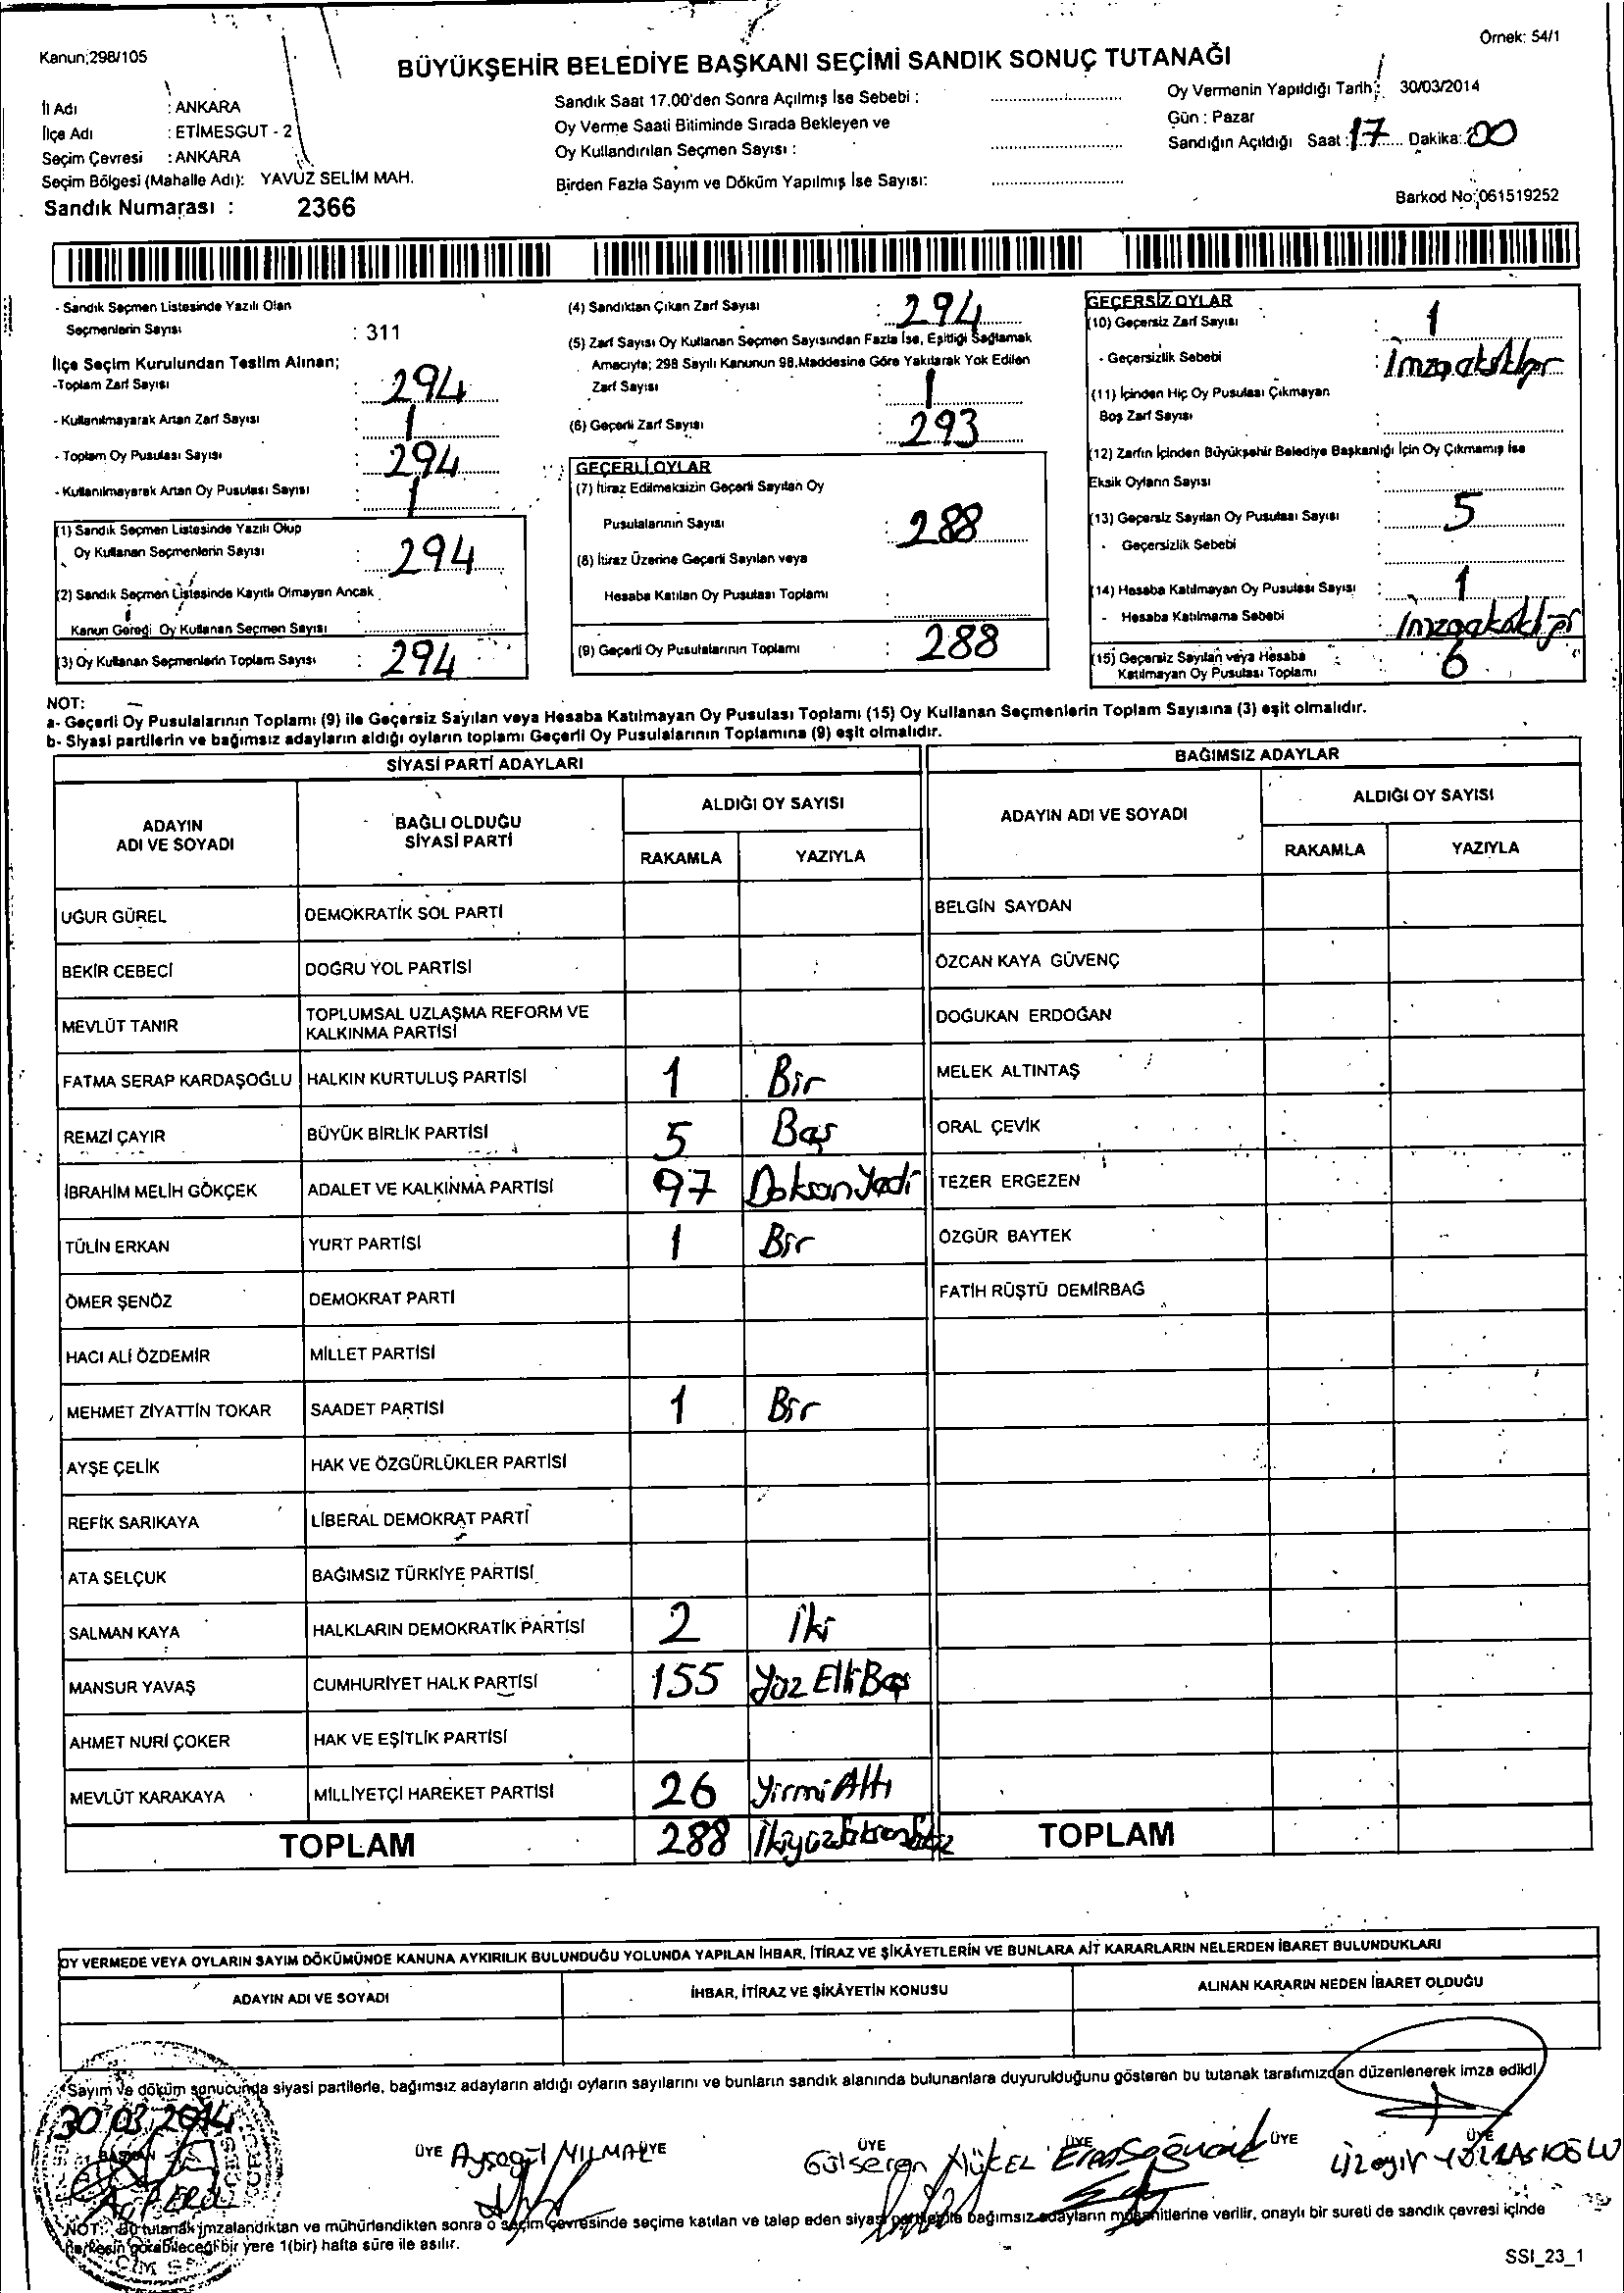 Kanun;298/105
Örnek: 54/1
BÜYÜKŞEHİR BELEDİYE BAŞKANI SEÇİMİ SANDIK SONUÇ TUTANAĞI
İl Adı : ANKARA
İlçe Adı : ETİMESGUT - 2
Seçim Çevresi : ANKARA
Seçim Bölgesi (Mahalle Adı): YAVUZ SELİM MAH.
Sandık Numarası : 2366
Sandık Saat 17.00'den Sonra Açılmış İse Sebebi :
Oy Verme Saati Bitiminde Sırada Bekleyen ve
Oy Kullandırılan Seçmen Sayısı :
Birden Fazla Sayım ve Döküm Yapılmış İse Sayısı:
Oy Vermenin Yapıldığı Tarih: 30/03/2014
Gün : Pazar
Sandığın Açıldığı Saat : 17 Dakika: 00
Barkod No:061519252
- Sandık Seçmen Listesinde Yazılı Olan
Seçmenlerin Sayısı : 311
İlçe Seçim Kurulundan Teslim Alınan;
-Toplam Zarf Sayısı : 294
- Kullanılmayarak Artan Zarf Sayısı : 1
- Toplam Oy Pusulası Sayısı : 294
- Kullanılmayarak Artan Oy Pusulası Sayısı : 1
(1) Sandık Seçmen Listesinde Yazılı Olup
Oy Kullanan Seçmenlerin Sayısı : 294
(2) Sandık Seçmen Listesinde Kayıtlı Olmayan Ancak
Kanun Gereği Oy Kullanan Seçmen Sayısı
(3) Oy Kullanan Seçmenlerin Toplam Sayısı : 294
(4) Sandıktan Çıkan Zarf Sayısı : 294
(5) Zarf Sayısı Oy Kullanan Seçmen Sayısından Fazla İse, Eşitliği Sağlamak
Amacıyla; 298 Sayılı Kanunun 98.Maddesine Göre Yakılarak Yok Edilen
Zarf Sayısı : 1
(6) Geçerli Zarf Sayısı : 293
GEÇERLİ OYLAR
(7) İtiraz Edilmeksizin Geçerli Sayılan Oy
Pusulalarının Sayısı : 288
(8) İtiraz Üzerine Geçerli Sayılan veya
Hesaba Katılan Oy Pusulası Toplamı :
(9) Geçerli Oy Pusulalarının Toplamı : 288
GEÇERSİZ OYLAR
(10) Geçersiz Zarf Sayısı : 1
- Geçersizlik Sebebi :
(11) İçinden Hiç Oy Pusulası Çıkmayan
Boş Zarf Sayısı :
(12) Zarfın İçinden Büyükşehir Belediye Başkanlığı İçin Oy Çıkmamış İse
Eksik Oyların Sayısı
(13) Geçersiz Sayılan Oy Pusulası Sayısı : 5
- Geçersizlik Sebebi :
(14) Hesaba Katılmayan Oy Pusulası Sayısı : 1
- Hesaba Katılmama Sebebi :
(15) Geçersiz Sayılan veya Hesaba
Katılmayan Oy Pusulası Toplamı : 6
NOT:
a- Geçerli Oy Pusulalarının Toplamı (9) ile Geçersiz Sayılan veya Hesaba Katılmayan Oy Pusulası Toplamı (15) Oy Kullanan Seçmenlerin Toplam Sayısına (3) eşit olmalıdır.
b- Siyasi partilerin ve bağımsız adayların aldığı oyların toplamı Geçerli Oy Pusulalarının Toplamına (9) eşit olmalıdır.
SİYASİ PARTİ ADAYLARI
ADAYIN ADI VE SOYADI BAĞLI OLDUĞU SİYASİ PARTİ ALDIĞI OY SAYISI
RAKAMLA YAZIYLA
UĞUR GÜREL DEMOKRATİK SOL PARTİ
BEKİR CEBECİ DOĞRU YOL PARTİSİ
MEVLÜT TANIR TOPLUMSAL UZLAŞMA REFORM VE KALKINMA PARTİSİ
FATMA SERAP KARDAŞOĞLU HALKIN KURTULUŞ PARTİSİ 1 Bir
REMZİ ÇAYIR BÜYÜK BİRLİK PARTİSİ 5 Beş
İBRAHİM MELİH GÖKÇEK ADALET VE KALKINMA PARTİSİ 97 Doksan Yedi
TÜLİN ERKAN YURT PARTİSİ 1 Bir
ÖMER ŞENÖZ DEMOKRAT PARTİ
HACI ALİ ÖZDEMİR MİLLET PARTİSİ
MEHMET ZİYATTİN TOKAR SAADET PARTİSİ 1 Bir
AYŞE ÇELİK HAK VE ÖZGÜRLÜKLER PARTİSİ
REFİK SARIKAYA LİBERAL DEMOKRAT PARTİ
ATA SELÇUK BAĞIMSIZ TÜRKİYE PARTİSİ
SALMAN KAYA HALKLARIN DEMOKRATİK PARTİSİ 2 İki
MANSUR YAVAŞ CUMHURİYET HALK PARTİSİ 155 Yüz Elli Beş
AHMET NURİ ÇOKER HAK VE EŞİTLİK PARTİSİ
MEVLÜT KARAKAYA MİLLİYETÇİ HAREKET PARTİSİ 26 Yirmi Altı
TOPLAM 288 İkiyüzseksensekiz
BAĞIMSIZ ADAYLAR
ADAYIN ADI VE SOYADI ALDIĞI OY SAYISI
RAKAMLA YAZIYLA
BELGİN SAYDAN
ÖZCAN KAYA GÜVENÇ
DOĞUKAN ERDOĞAN
MELEK ALTINTAŞ
ORAL ÇEVİK
TEZER ERGEZEN
ÖZGÜR BAYTEK
FATİH RÜŞTÜ DEMİRBAĞ
TOPLAM
OY VERMEDE VEYA OYLARIN SAYIM DÖKÜMÜNDE KANUNA AYKIRILIK BULUNDUĞU YOLUNDA YAPILAN İHBAR, İTİRAZ VE ŞİKÂYETLERİN VE BUNLARA AİT KARARLARIN NELERDEN İBARET BULUNDUKLARI
ADAYIN ADI VE SOYADI İHBAR, İTİRAZ VE ŞİKÂYETİN KONUSU ALINAN KARARIN NEDEN İBARET OLDUĞU
Sayım ve döküm sonucunda siyasi partilerle, bağımsız adayların aldığı oyların sayılarını ve bunların sandık alanında bulunanlara duyurulduğunu gösteren bu tutanak tarafımızdan düzenlenerek imza edildi
30.03.2014
BAŞKAN ÜYE ÜYE ÜYE ÜYE ÜYE ÜYE
Ayşegül YILMAZ Gülseren YÜKEL
NOT: Bu tutanak imzalandıktan ve mühürlendikten sonra o seçim çevresinde seçime katılan ve talep eden siyasi partilerle bağımsız adayların müşahitlerine verilir, onaylı bir sureti de sandık çevresi içinde
herkesin görebileceği bir yere 1(bir) hafta süre ile asılır.
SSI_23_1